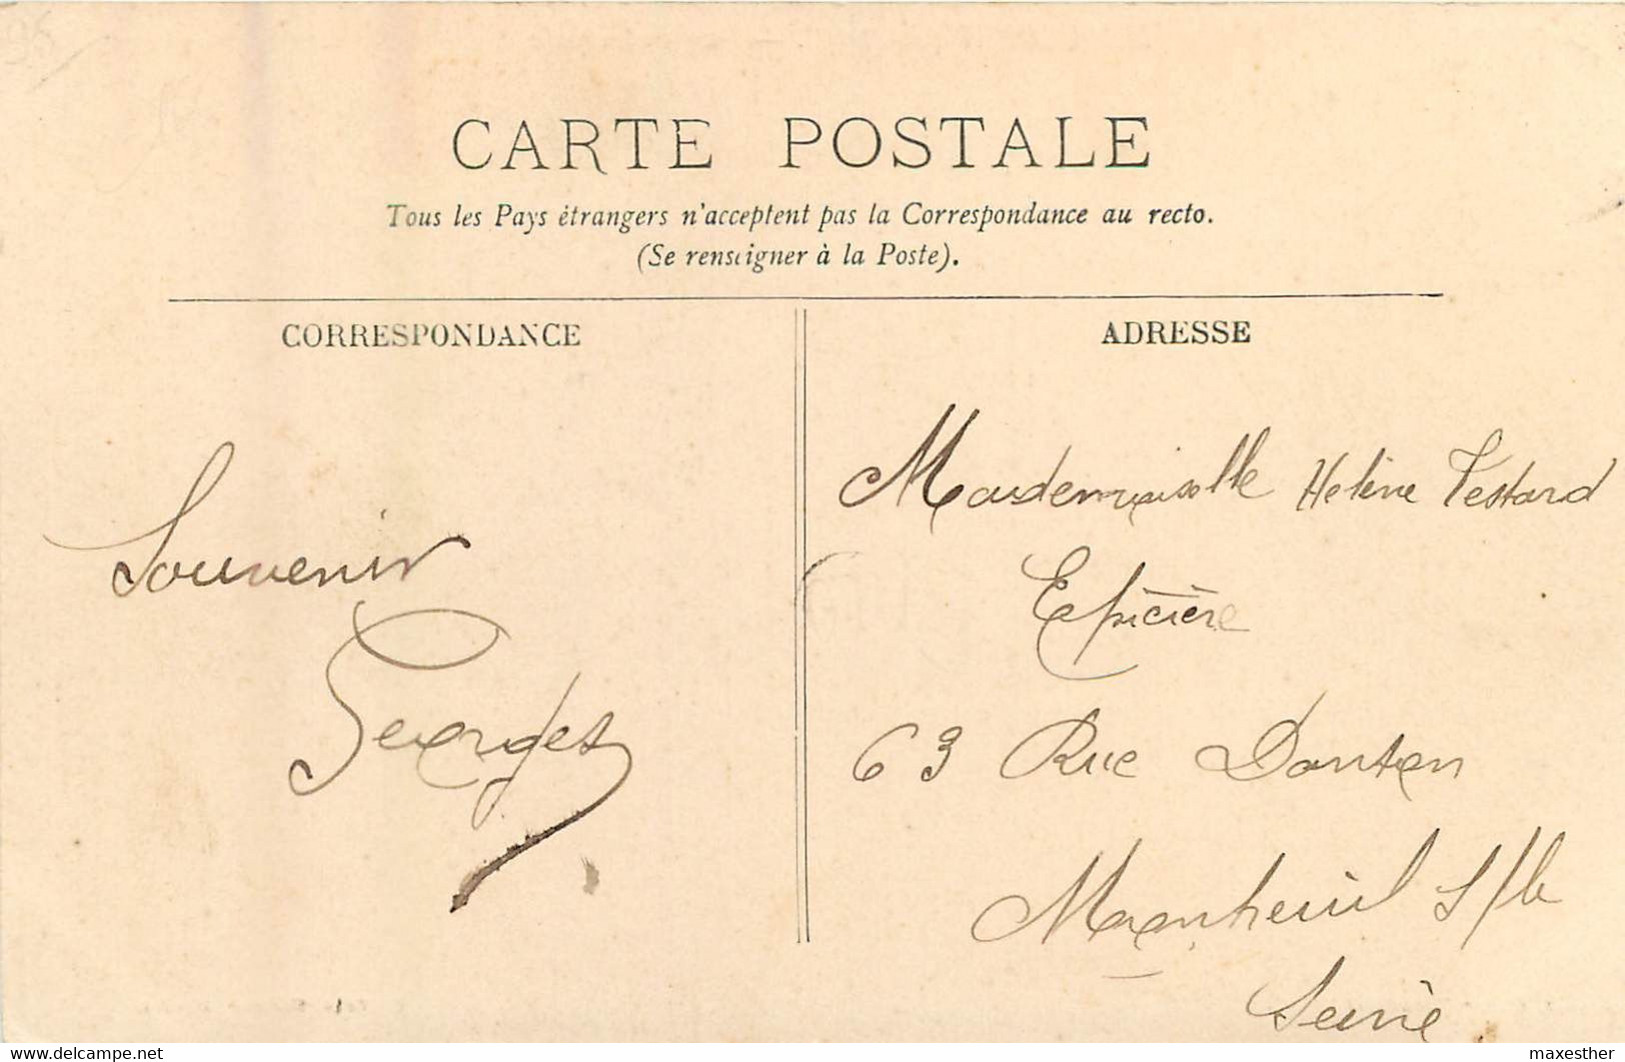 95
CARTE POSTALE
Tous les Pays étrangers n'acceptent pas la Correspondance au recto.
(Se renseigner à la Poste).
CORRESPONDANCE
Souvenir
Georges
ADRESSE
Mademoiselle Helène Testard
Epicière
63 Rue Danton
Montreuil S/b
Seine
https://www.delcampe.net
maxesther